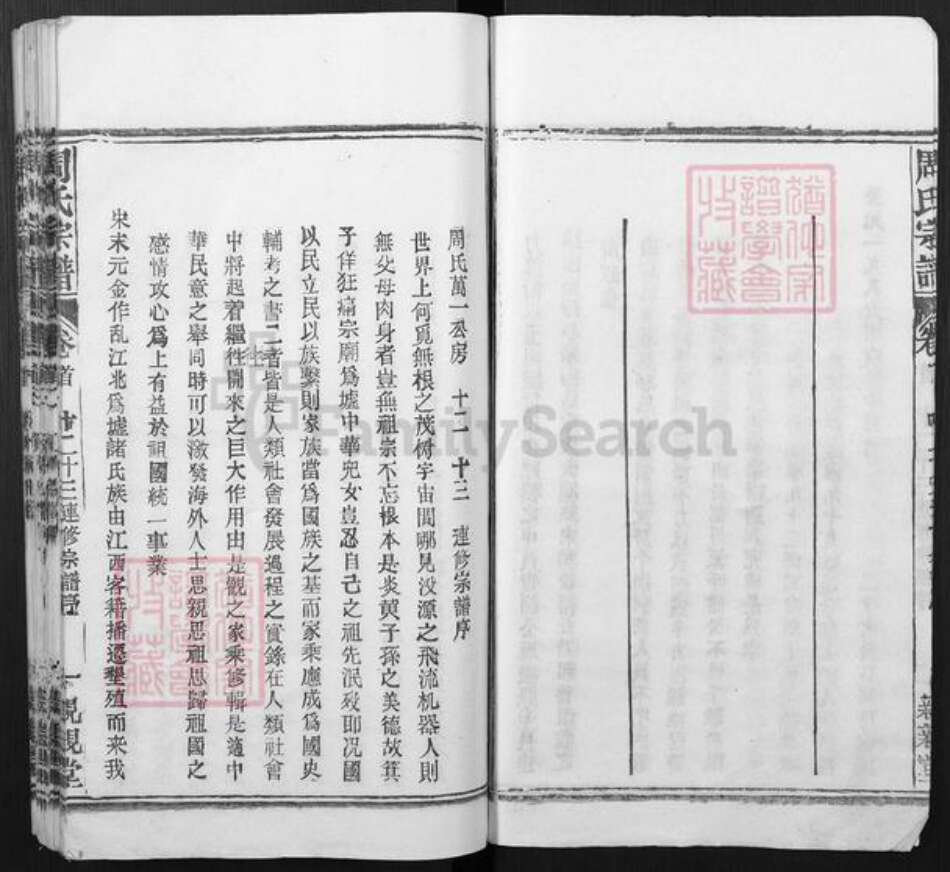 周氏宗譜
周氏萬一公房 十二 十三 連修宗譜序
世界上何覓無根之茂树宇宙間哪見没源之飛流机器人則
無父母肉身者豈無祖宗不忘根本是炎黄子孫之美德故箕
子佯狂痛宗廟爲墟中華兒女豈忍自己之祖先泯殁即况國
以民立民以族繫則家族當爲國族之基而家乘應成爲國史
輔考之書二者皆是人類社會發展過程之實錄在人類社會
中將起着繼往開來之巨大作用由是觀之家乘修輯是適中
華民意之舉同時可以激發海外人士思親思祖思歸祖國之
感情攻心爲上有益於祖國統一事業
宋末元金作乱江北爲墟諸氏族由江西客籍播遷墾殖而来我
周氏宗譜 卷首 十二十三連修宗譜序 一 親親堂
猶他家譜學會收藏
猶他家譜學會收藏
FamilySearch